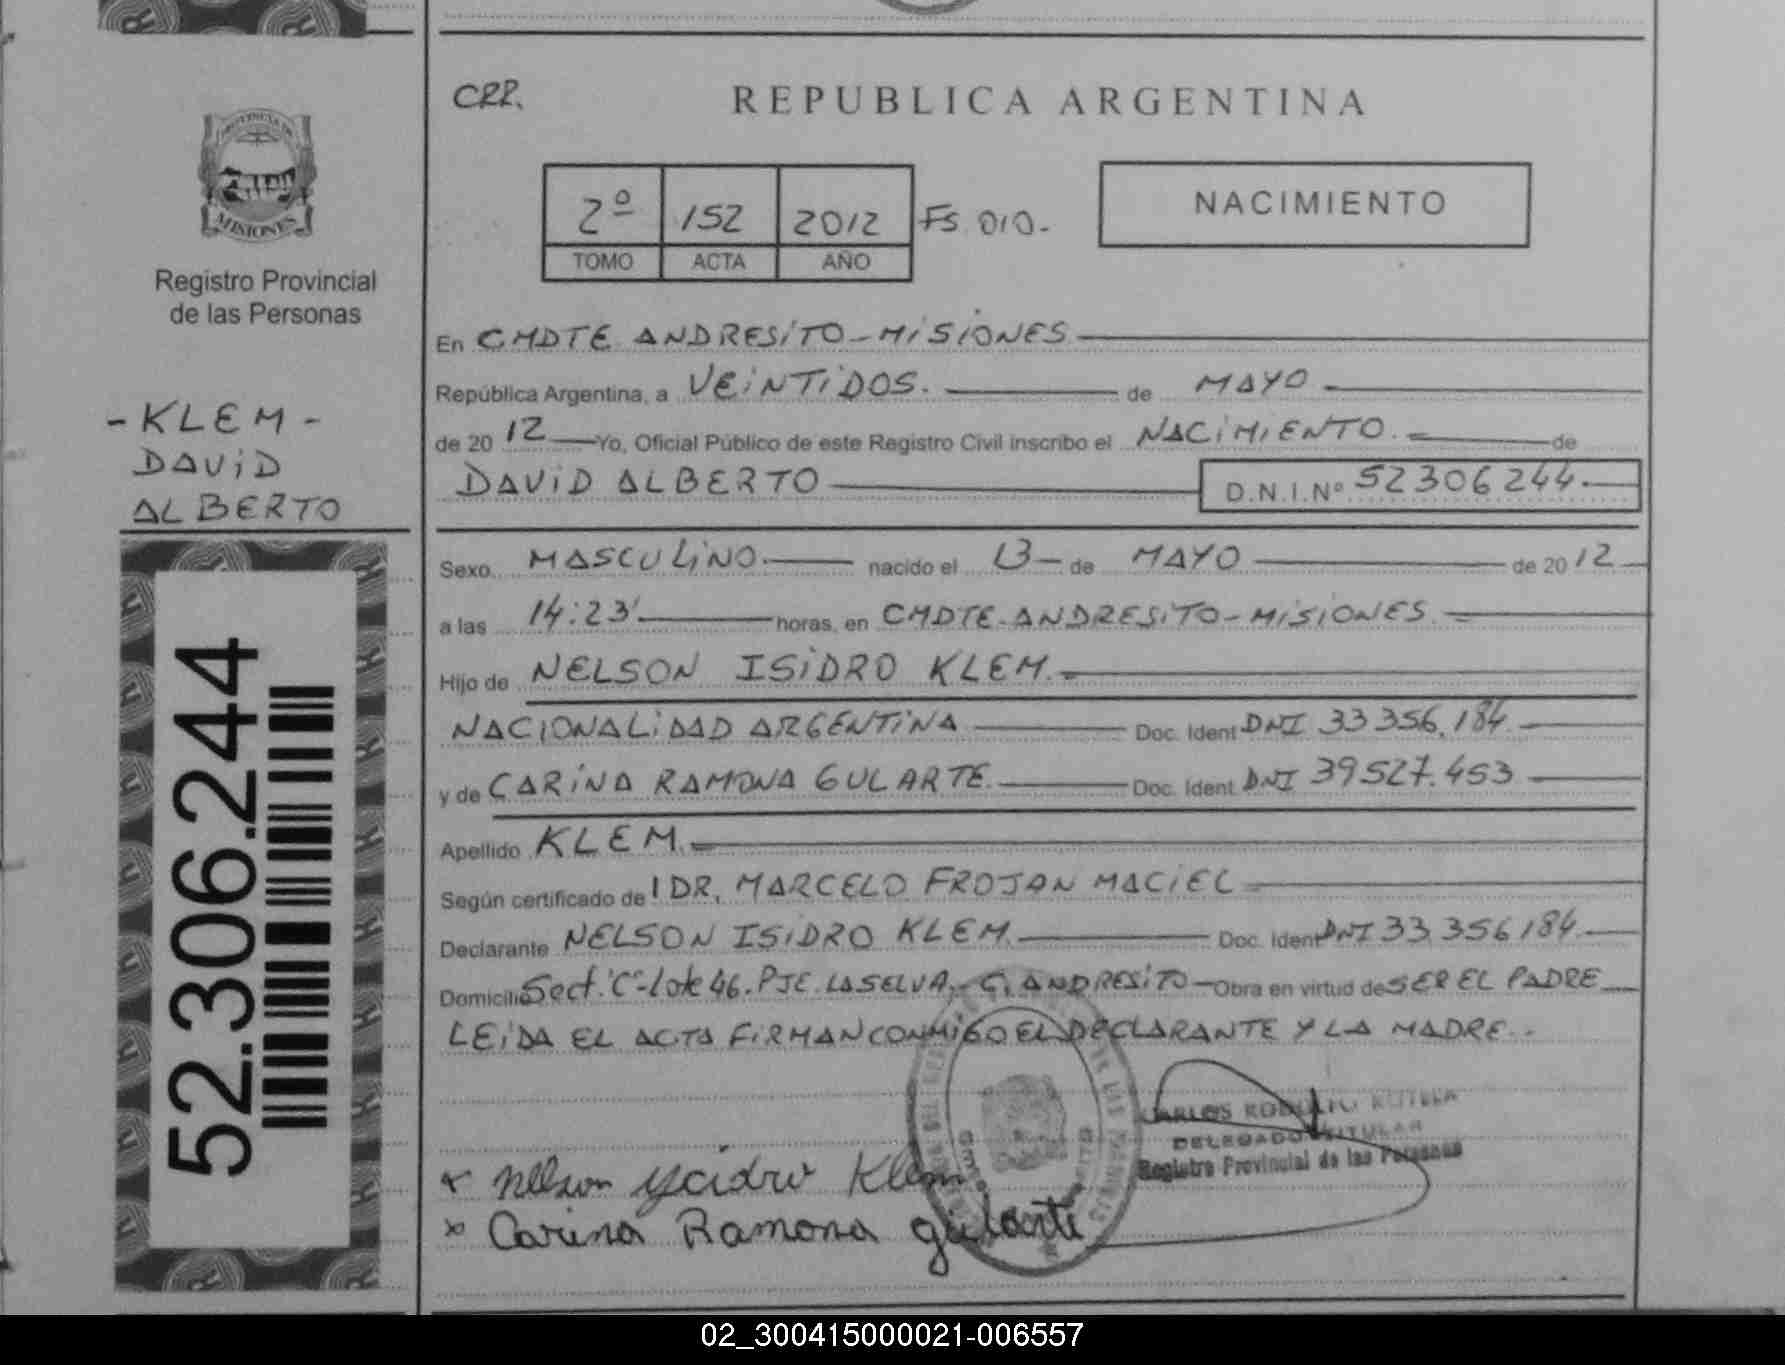 CRR.
REPUBLICA ARGENTINA
PROVINCIA DE
MISIONES
2º 152 2012 FS. 010.-
TOMO ACTA AÑO
NACIMIENTO
Registro Provincial
de las Personas
- KLEM -
DAVID
ALBERTO
52.306.244
En CMDTE ANDRESITO - MISIONES
República Argentina, a VEINTIDOS. de MAYO
de 2012 Yo, Oficial Público de este Registro Civil inscribo el NACIMIENTO. de
DAVID ALBERTO D.N.I.Nº 52306244.
Sexo MASCULINO. nacido el 13 de MAYO de 2012
a las 14:23' horas, en CMDTE. ANDRESITO - MISIONES.
Hijo de NELSON ISIDRO KLEM.
NACIONALIDAD ARGENTINA Doc. Ident DNI 33 356.184.
y de CARINA RAMONA GULARTE. Doc. Ident. DNI 39527.453
Apellido KLEM.
Según certificado de 1 DR. MARCELO FROJAN MACIEL
Declarante NELSON ISIDRO KLEM. Doc. Ident DNI 33.356184.
Domicilio Sect. "C" Lote 46. PJE. LA SELVA, - C. ANDRESITO - Obra en virtud de SER EL PADRE
LEIDA EL ACTA FIRMAN CONMIGO EL DECLARANTE Y LA MADRE..
CARLOS RODOLFO
DELEGADO TITULAR
Registro Provincial de las Personas
x Nelson Ycidro Klem
x Carina Ramona gularte
02_300415000021-006557